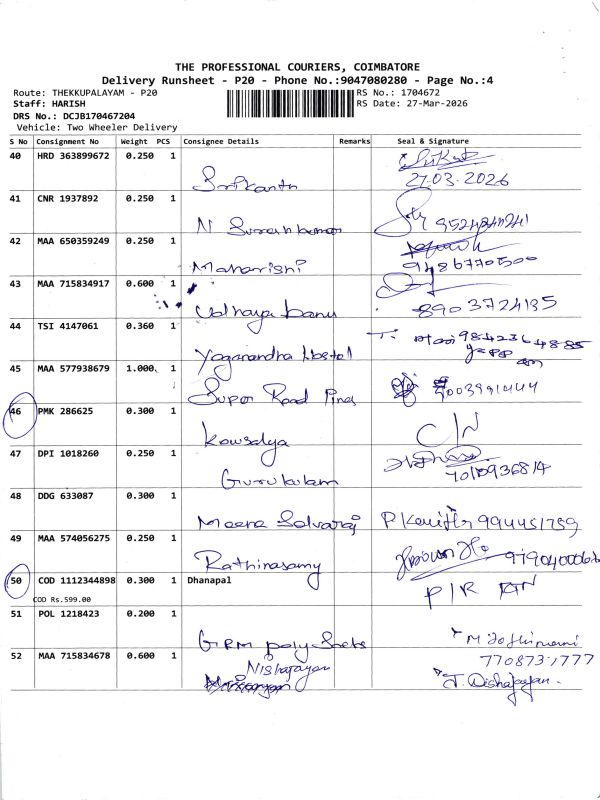 THE PROFESSIONAL COURIERS, COIMBATORE
Delivery Runsheet - P20 - Phone No.:9047080280 - Page No.:4
Route: THEKKUPALAYAM - P20
RS No.: 1704672
Staff: HARISH
RS Date: 27-Mar-2026
DRS No.: DCJB170467204
Vehicle: Two Wheeler Delivery
S No Consignment No Weight PCS Consignee Details Remarks Seal & Signature
40 HRD 363899672 0.250 1
Srikanth 27-03-2026
41 CNR 1937892 0.250 1
N Sureshkumar
42 MAA 650359249 0.250 1
Maharishi 9486770500
43 MAA 715834917 0.600 1
Udhaya banu 8903724135
44 TSI 4147061 0.360 1
Yoganandha Hostel
45 MAA 577938679 1.000 1
Super Road Pines
46 PMK 286625 0.300 1
Kowsalya C/N
47 DPI 1018260 0.250 1
Gurukulam 7010936814
48 DDG 633087 0.300 1
Meena Selvaraj
49 MAA 574056275 0.250 1
Rathinasamy
50 COD 1112344898 0.300 1 Dhanapal
COD Rs.599.00
P/R
51 POL 1218423 0.200 1
GRM poly
M Jothimani
7708731777
52 MAA 715834678 0.600 1
Nishajayan